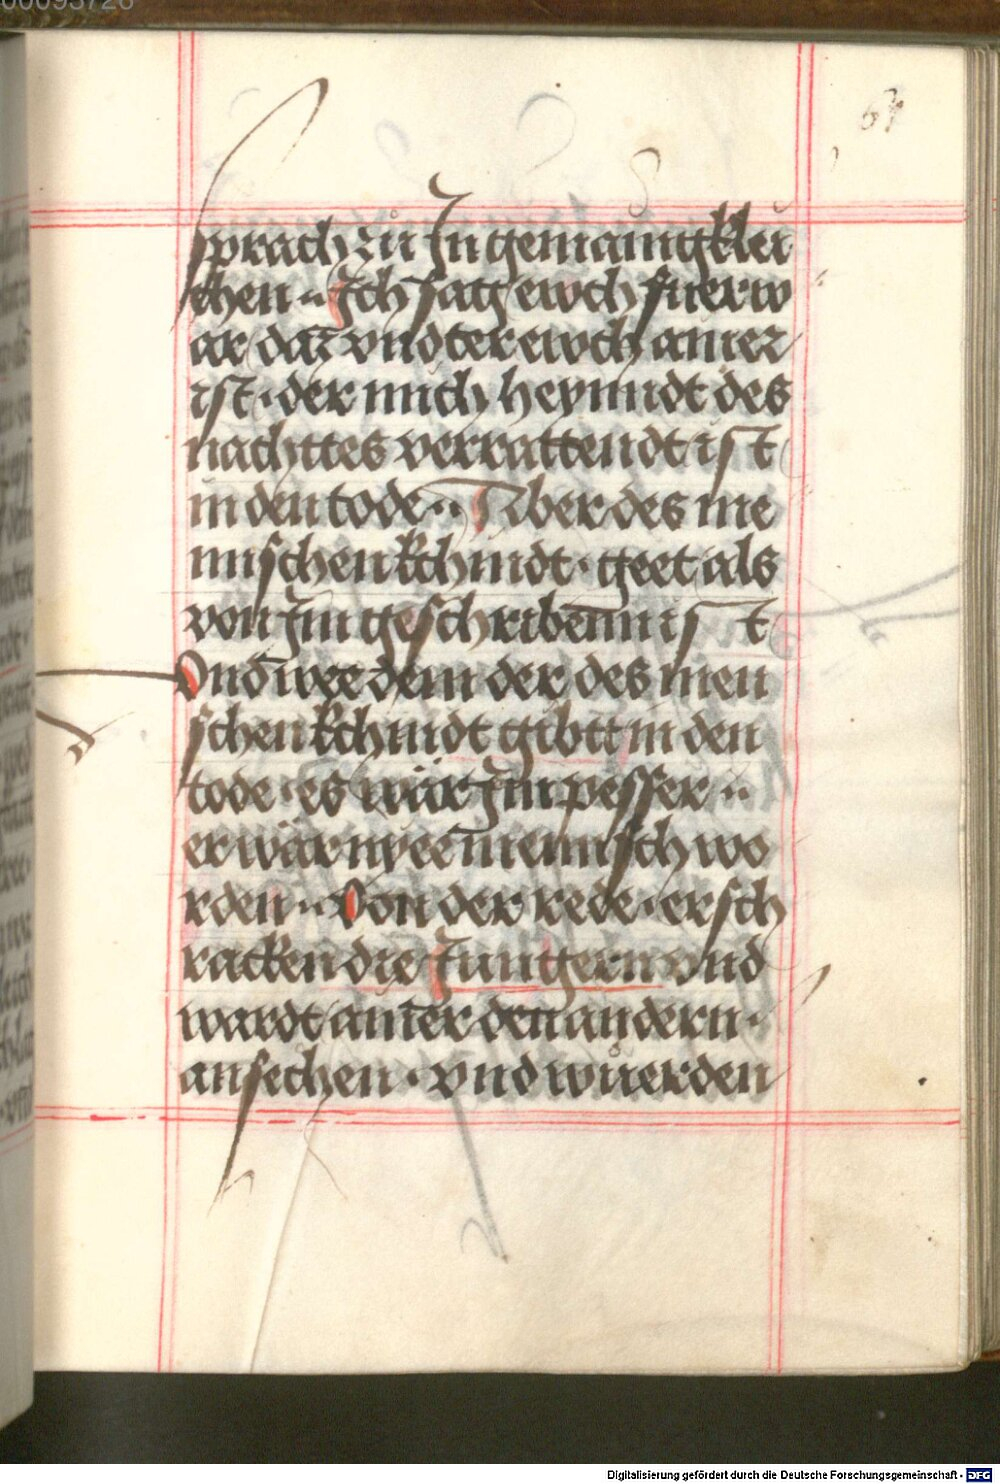 64
sprach zů Jn gemainigkler
chen ·· Jch sag ewch fuerw
ar daz vndter ewch ainer
ist · der mich heyindt des
nachttes verrattendt ist
in den tode ·· Aber des me
nnschen kchindt · geet als
von Jm geschribenn ist
Vnd wee dem der des men
schen kchindt gibtt in den
tode · es wär Jm pesser ··
er wär nye ein mennsch wo
rden ·· Von der rede · ersch
racken die Jungern vnd
wardt ainer den andern ·
ansechen · vnd wůerden
Digitalisierung gefördert durch die Deutsche Forschungsgemeinschaft - DFG